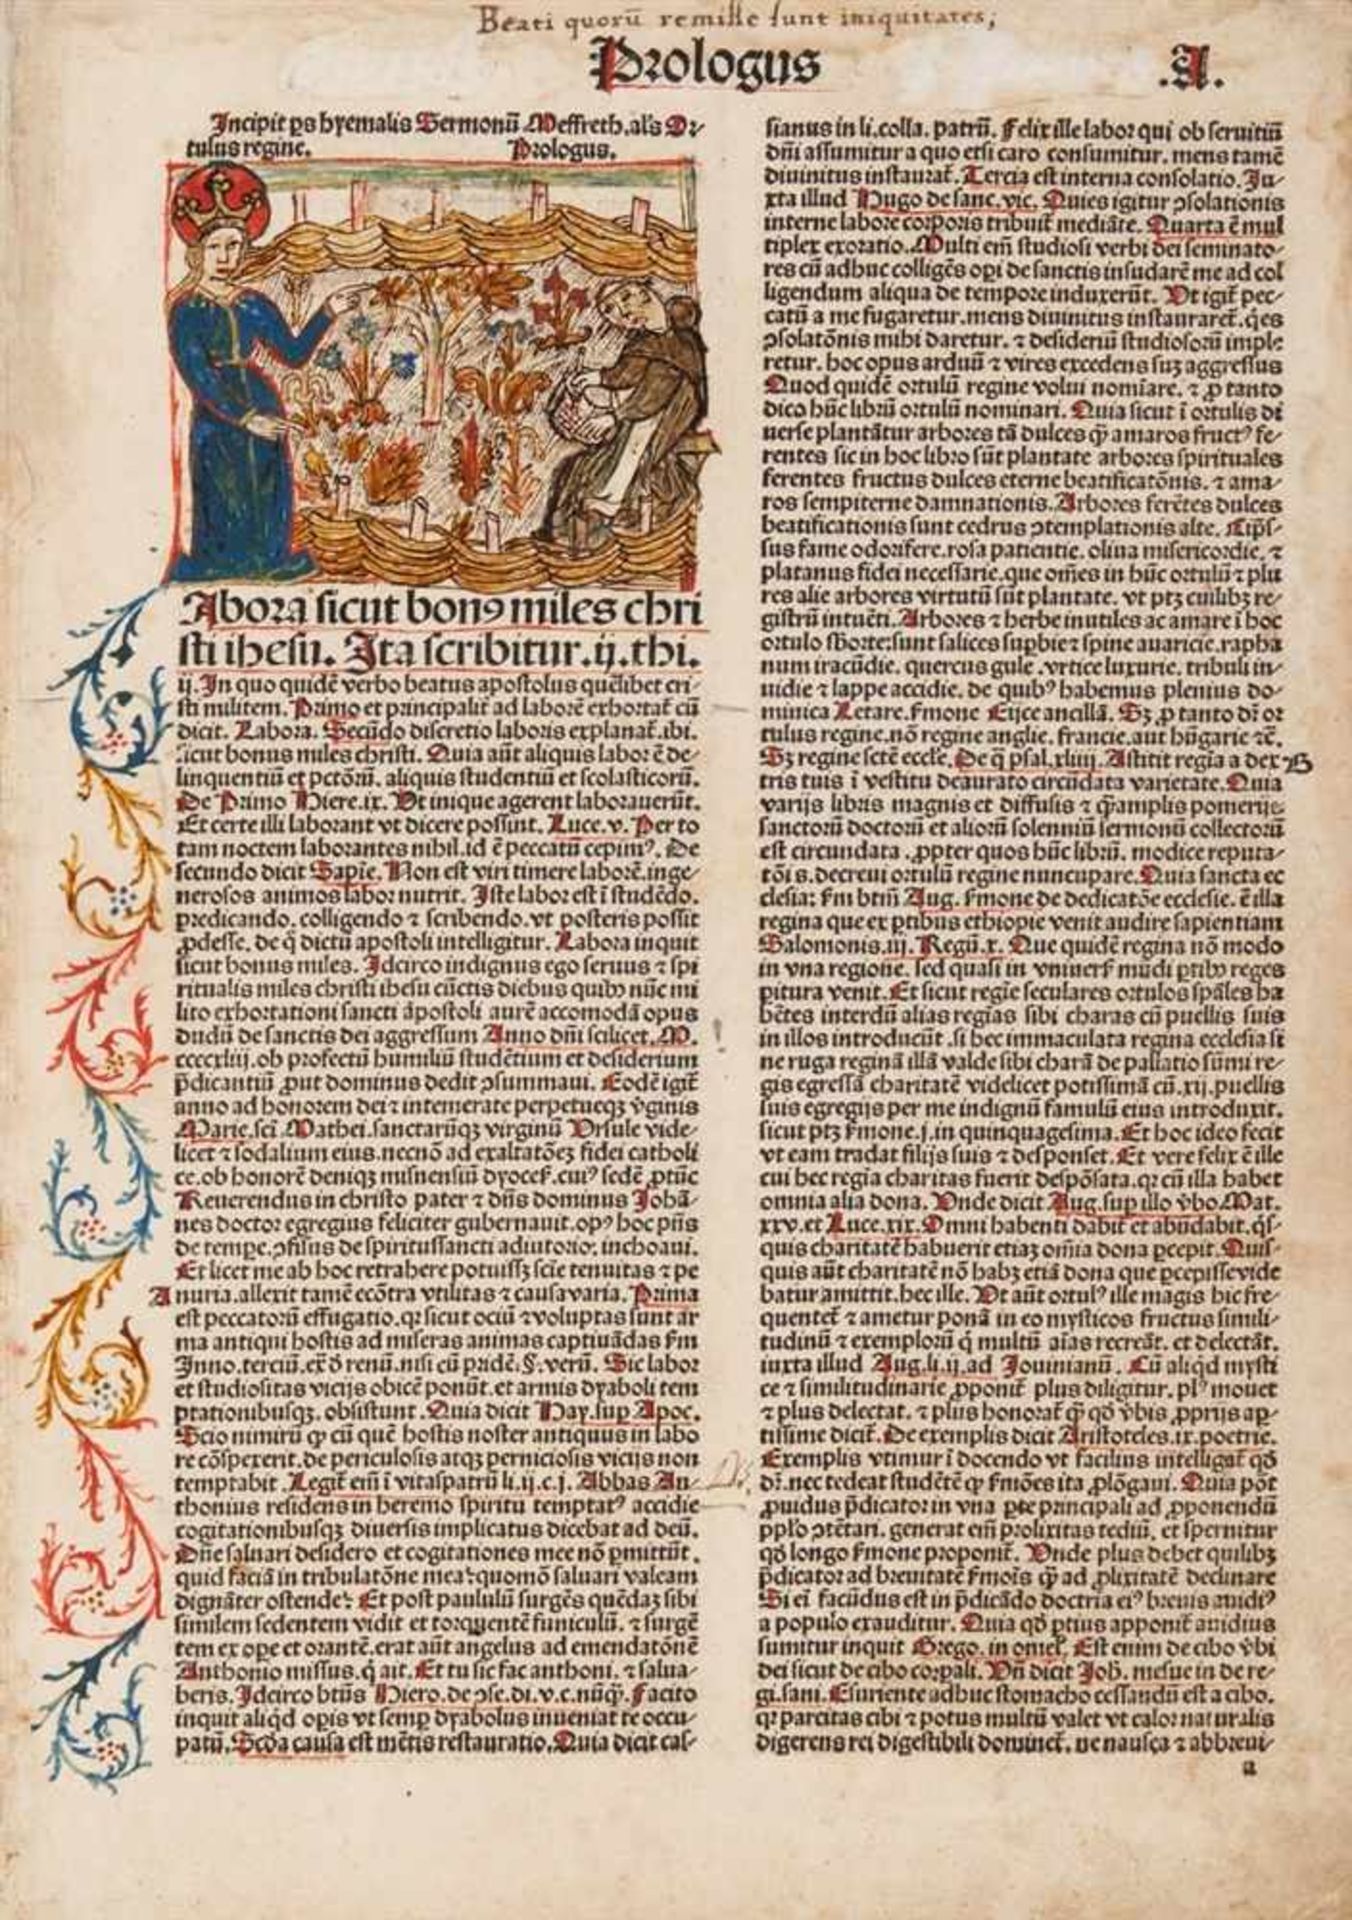 Beati quorū remisse sunt iniquitates,
Prologus
.A.
Incipit ps hyemalis Sermonū Meffreth. al's Or-
tulus regine. Prologus.
Abora sicut bonꝰ miles chri
sti ihesu. Ita scribitur .ij. thi.
ij. In quo quidē verbo beatus apostolus quēlibet cri-
sti militem. Primo et principalit̄ ad laborē exhortat̄ cū
dicit. Labora. Secūdo discretio laboris explanat̄. ibi.
sicut bonus miles christi. Quia aūt aliquis labor ē de-
linquentiū et pctōrū. aliquis studentiū et scolasticorū.
De Primo Hiere. ix. Vt inique agerent laborauerūt.
Et certe illi laborant vt dicere possint. Luce. v. Per to
tam noctem laborantes nihil. id ē peccatū cepimꝰ. De
secundo dicit Sapie. Non est viri timere laborē. inge-
nerosos animos labor nutrit. Iste labor est ī studēdo.
predicando. colligendo ⁊ scribendo. vt posteris possit
ꝓdesse. de q̄ dictū apostoli intelligitur. Labora inquit
sicut bonus miles. Idcirco indignus ego seruus ⁊ spi
ritualis miles christi ihesu cūctis diebus quibꝫ nūc mi
lito exhortationi sancti apostoli aurē accomodā opus
dudū de sanctis dei aggressum Anno dn̄i scilicet. M.
ccccxliij. ob profectū humiliū studētium et desiderium
p̄dicantiū ꝓut dominus dedit ꝯsummaui. Eodē igit̄
anno ad honorem dei ⁊ intemerate perpetueqꝫ v̄ginis
Marie. sci Mathei. sanctarūqꝫ virginū Vrsule vide-
licet ⁊ sodalium eius. necnō ad exaltatōeꝫ fidei catholi
ce. ob honorē deniqꝫ misnensiū dyoces̄. cuiꝰ sedē ꝑtūc
Reuerendus in christo pater ⁊ dn̄s dominus Johā-
nes doctor egregius feliciter gubernauit. opꝰ hoc pn̄s
de tempe. ꝯfisus de spiritussancti adiutorio. inchoaui.
Et licet me ab hoc retrahere potuissꝫ scie tenuitas ⁊ pe
A nuria. allexit tamē ecōtra vtilitas ⁊ causa varia. Prima
est peccatorū effugatio. qꝛ sicut ociū ⁊ voluptas sunt ar
ma antiqui hostis ad miseras animas captiuādas s̄m
Inno. terciū. nisi cū pridē. §. verū. Sic labor
et studiositas vicijs obicē ponūt. et armis dyaboli tem
ptationibusqꝫ. obsistunt. Quia dicit Hay. sup Apoc.
Scio nimirū ꝙ cū quē hostis noster antiquus in labo
re cōspexerit. de periculosis atqꝫ perniciosis vicijs non
temptabit. Legit̄ em̄ ī vitaspatrū li. ij. c. j. Abbas An-
thonius residens in heremo spiritu temptatꝰ accidie
cogitationibusqꝫ diuersis implicatus dicebat ad deū.
Dn̄e saluari desidero et cogitationes mee nō ꝑmittūt.
quid faciā in tribulatōne mea: quomō saluari valeam
dignāter ostende: Et post paululū surgēs quēdaꝫ sibi
similem sedentem vidit et torquentē funiculū. ⁊ surgē
tem ex ope et orantē. erat aūt angelus ad emendatōnē
Anthonio missus. q̄ ait. Et tu sic fac anthoni. ⁊ salua-
beris. Idcirco btūs Hiero. de ꝯse. di. v. c. nūq̄. Facito
inquit aliq̄d opis vt semp dyabolus inueniat te occu-
patū. Scd̄a causa est mētis restauratio. Quia dicit cas-
sianus in li. colla. patrū. Felix ille labor qui ob seruitiū
dn̄i assumitur a quo etsi caro consumitur. mens tamē
diuinitus instaurat̄. Tercia est interna consolatio. Ju-
xta illud Hugo de sanc. vic. Quies igitur ꝯsolationis
interne labore corporis tribuit̄ mediāte. Quarta ē mul
tiplex exoratio. Multi em̄ studiosi verbi dei seminato-
res cū adhuc colligēs opi de sanctis insudarē me ad col
ligendum aliqua de tempore induxerūt. Vt igit̄ pec-
catū a me fugaretur. mens diuinitus instauraret̄. q̄es
ꝯsolatōnis mihi daretur. ⁊ desideriū studiosorū imple
retur. hoc opus arduū ⁊ vires excedens suꝫ aggressus
Quod quidē ortulū regine volui nomīare. ⁊ ꝓ tanto
dico hūc librū ortulū nominari. Quia sicut ī ortulis di
uerse plantātur arbores tā dulces q̄ amaros fructꝰ fe-
rentes sic in hoc libro sūt plantate arbores spirituales
ferentes fructus dulces eterne beatificatōnis. ⁊ ama-
ros sempiterne damnationis. Arbores ferētes dulces
beatificationis sunt cedrus ꝯtemplationis alte. Cip̄s-
sus fame odorifere. rosa patientie. oliua misericordie. ⁊
platanus fidei necessarie. que om̄es in hūc ortulū ⁊ plu
res alie arbores virtutū sūt plantate. vt ptꝫ cuilibꝫ re-
gistrū intuēti. Arbores ⁊ herbe inutiles ac amare ī hoc
ortulo: sunt salices supbie ⁊ spine auaricie. rapha
num iracūdie. quercus gule. vrtice luxurie. tribuli in-
uidie ⁊ lappe accidie. de quibꝰ habemus plenius do-
minica Letare. s̄mone Eijce ancillā. Sꝫ ꝓ tanto dr̄ or
tulus regine. nō regine anglie. francie. aut hūgarie ⁊c̄.
Sꝫ regine sctē eccle. De q̄ psal. xliiij. Astitit regia a dex B
tris tuis ī vestitu deaurato circūdata varietate. Quia
varijs libris magnis et diffusis ⁊ q̄amplis pomerijs
sanctorū doctorū et aliorū solenniū sermonū collectorū
est circundata. ꝓpter quos hūc librū. modice reputa-
tōis. decreui ortulū regine nuncupare. Quia sancta ec
clesia: s̄m btm̄ Aug. s̄mone de dedicatōe ecclesie. ē illa
regina que ex ꝑtibus ethiopie venit audire sapientiam
Salomonis. iij. Regū. x. Que quidē regina nō modo
in vna regione. sed quasi in vniuers̄ mūdi ꝑtibꝫ reges
ꝑitura venit. Et sicut regie seculares ortulos sp̄ales ha
bētes interdū alias regias sibi charas cū puellis suis
in illos introducūt. si hec immaculata regina ecclesia si
ne ruga reginā illā valde sibi charā de pallatio sūmi re-
gis egressā charitatē videlicet potissimā cū. xij. puellis
suis egregijs per me indignū famulū eius introduxit.
sicut ptꝫ s̄mone. j. in quinquagesima. Et hoc ideo fecit
vt eam tradat filijs suis ⁊ desponset. Et vere felix ē ille
cui hec regia charitas fuerit despōsata. qꝛ cū illa habet
omnia alia dona. Vnde dicit Aug. sup illo v̄bo Mat.
xxv. et Luce. xix. Omni habenti dabit̄ et abūdabit. q̄s-
quis charitatē habuerit etiaꝫ om̄ia dona ꝑcepit. Quis-
quis aūt charitatē nō habꝫ etiā dona que ꝑcepisse vide
batur amittit. hec ille. Vt aūt ortulꝰ ille magis hic fre-
quentet̄ ⁊ ametur ponā in eo mysticos fructus simili-
tudinū ⁊ exemplorū q̄ multū aīas recreāt. et delectāt.
iuxta illud Aug. li. ij. ad Jouinianū. Cū aliq̄d mysti
ce ⁊ similitudinarie ꝓponit̄ plus diligitur. plꝰ mouet
⁊ plus delectat. ⁊ plus honorat̄ q̄ qd̄ v̄bis ꝓprijs ap-
tissime dicit̄. De exemplis dicit Aristoteles. ix. poetrie.
Exemplis vtimur ī docendo vt facilius intelligat̄ qd̄
dr̄. nec tedeat studētē ꝙ s̄mōes ita ꝓlōgaui. Quia pōt
ꝓuidus p̄dicator in vna ꝑte principali ad ꝓponendū
pplo ꝯtētari. generat em̄ prolixitas tediū. et spernitur
qd̄ longo s̄mone proponit̄. Vnde plus debet quilibꝫ
p̄dicator ad breuitatē s̄mois q̄ ad ꝓlixitatē declinare
Si em̄ facūdus est in p̄dicādo doctria eiꝰ breuis auidiꝰ
a populo exauditur. Quia qd̄ ꝑtius apponit̄ auidius
sumitur inquit Grego. in omel. Est enim de cibo v̄bi
dei sicut de cibo corpali. Vn̄ dicit Joh. mesue in de re-
gi. sani. Esuriente adhuc stomacho cessandū est a cibo.
qꝛ parcitas cibi ⁊ potus multū valet vt calor naturalis
digerens rei digestibili dominet̄. ne nausea ⁊ abbreui-
a